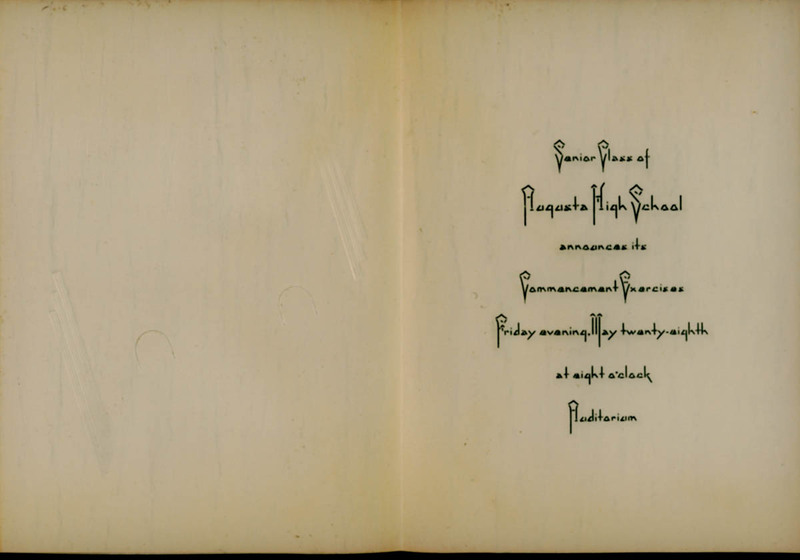 Senior Class of
Augusta High School
announces its
Commencement Exercises
Friday evening, May twenty-eighth
at eight o'clock
Auditorium